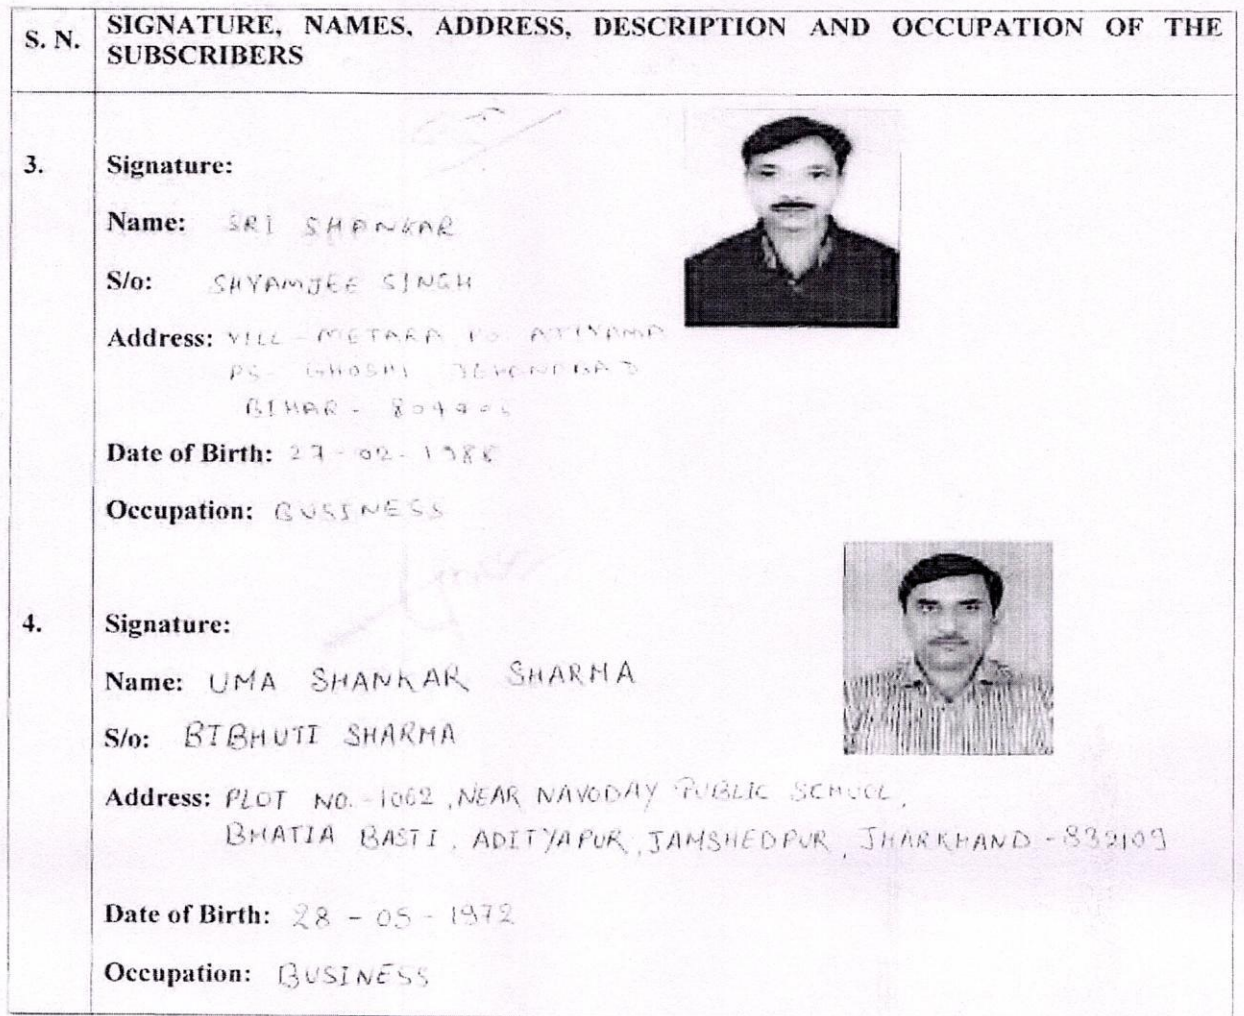 S. N. SIGNATURE, NAMES, ADDRESS, DESCRIPTION AND OCCUPATION OF THE
SUBSCRIBERS
3. Signature:
Name: SRI SHANKAR
S/o: SHYAMJEE SINGH
Address: VILL - METARA PO
PS- GHOSHI
BIHAR -
Date of Birth: 27-02-
Occupation: BUSINESS
4. Signature:
Name: UMA SHANKAR SHARMA
S/o: BIBHUTI SHARMA
Address: PLOT NO.-1062, NEAR NAVODAY PUBLIC SCHOOL,
BHATIA BASTI, ADITYAPUR, JAMSHEDPUR, JHARKHAND - 832109
Date of Birth: 28 - 05 - 1972
Occupation: BUSINESS